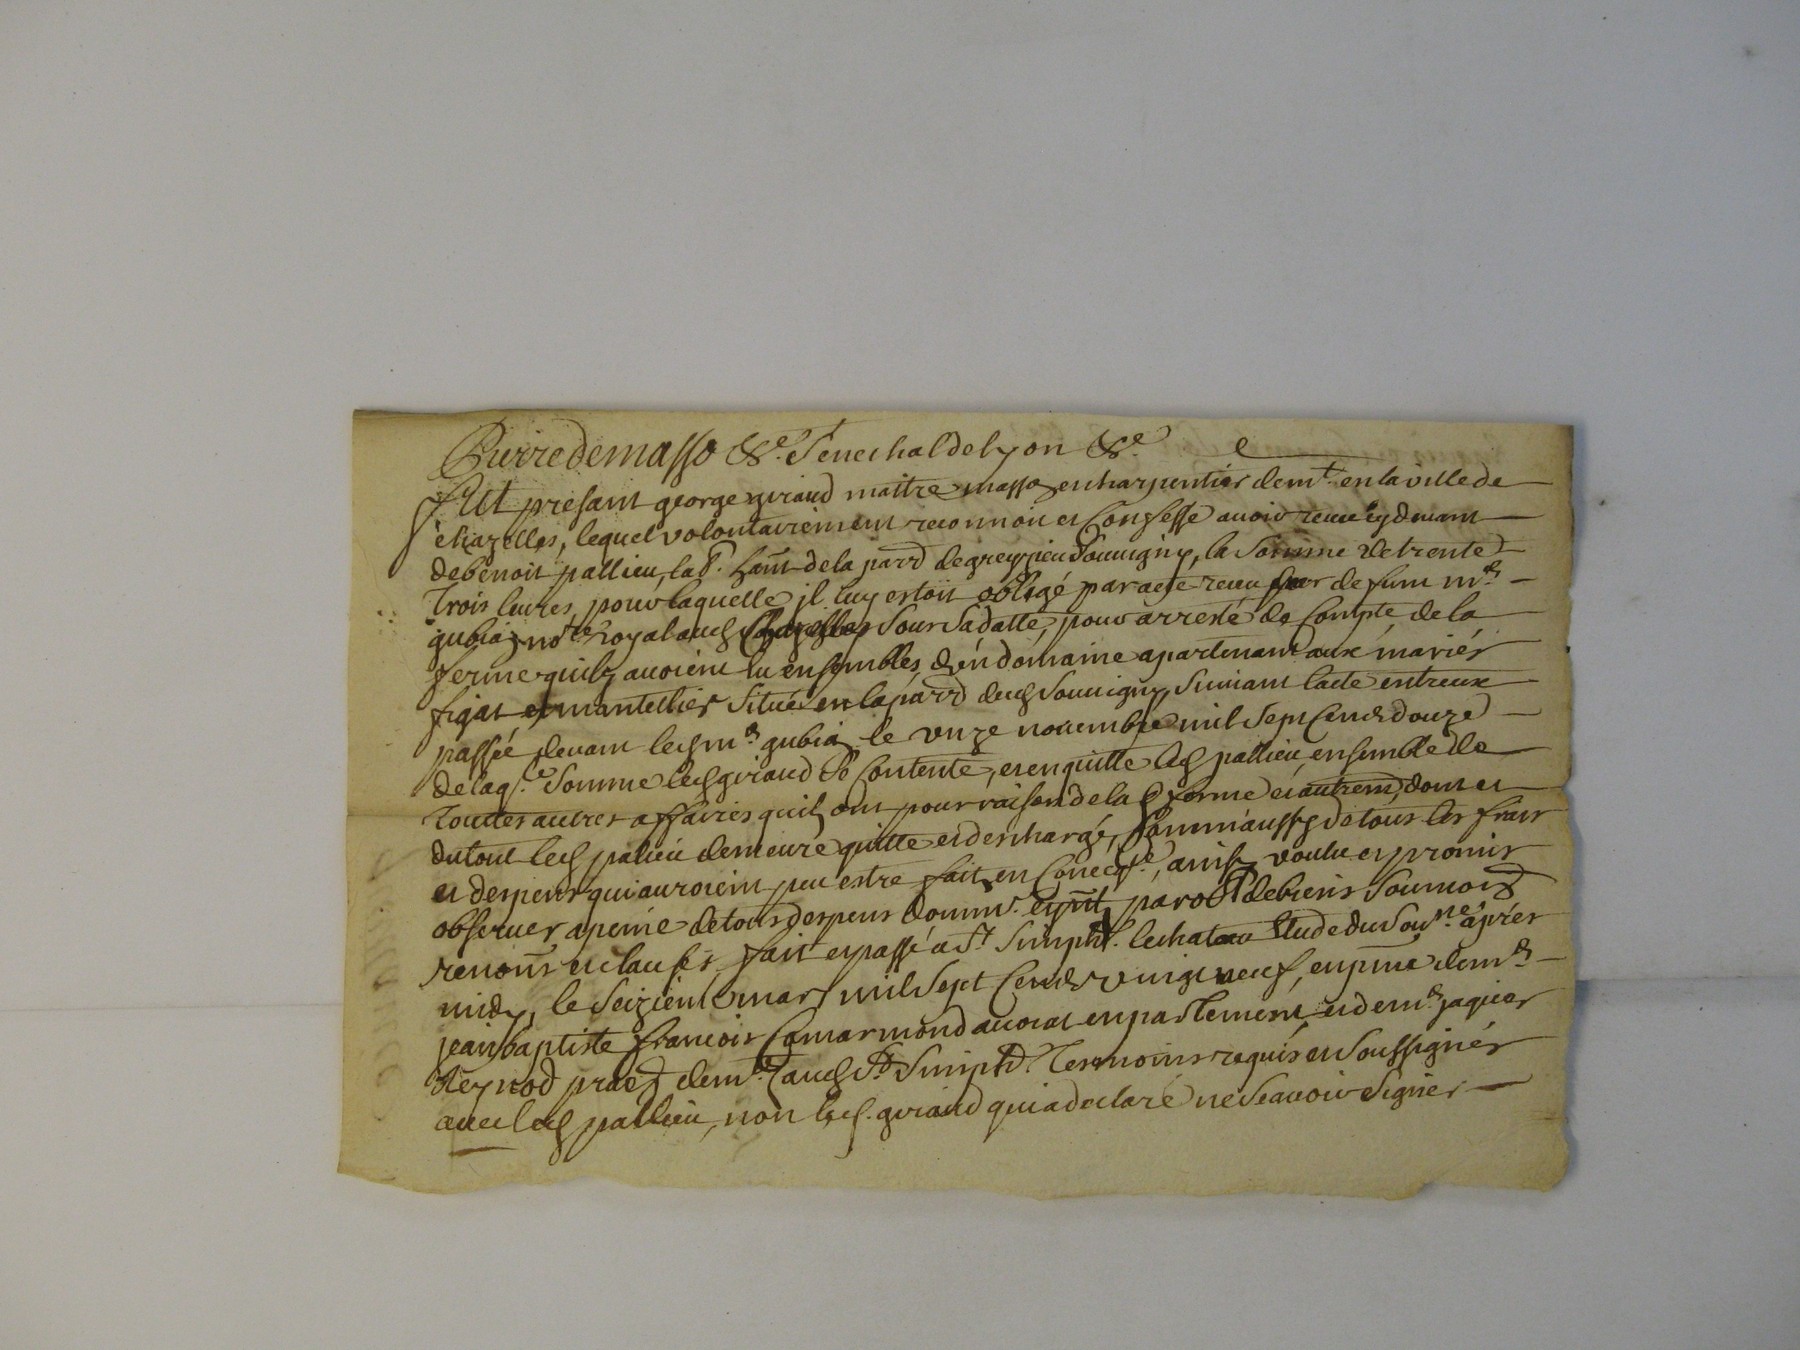 Pierre de masso &c. Senechal de lyon &c.
Fut presant george giraud maitre masson charpentier demt. en la ville de
chazelles, lequel volontairement reconnoit et Confesse avoir receu cy devant
de benoit pallieu, lab. hant de la parr de greyzieu Souvigny, la Somme de trente
trois livres, pour laquelle jl luy estoit obligé par acte receu par defunt me
gubian notre royal aud Chazelles Sour Sadatte, pour arresté de Compte de la
ferme quils avoient eu ensembles d'un domaine apartenant aux mariés
figat et mantellier Situé en la parr dud Souvigny, Suivant lacte entreux
passée devant led me gubian le vnze novembre mil Sept Cends douze
de laqe. Somme led giraud Se Contente, et en quitte led pallieu, ensemble de
touttes autres affaires quils ont pour raison de la ferme et autremt, dont et
du tout led palieu demeure quitte et deschargé, Comm'aussy de tous les frais
et despens qui auroient peu estre faits en Conceqce, ainsy voulu et promis
observer a peine de tous despens domms. par obt de biens Soumois
renons et clauses, fait et passé a St Simphn. le chateau Etude du Sour. ne après
midy, le Seizieme mars mil Sept Cends vingt neuf, en pnce de me
jean baptiste francois Camarmond avocat en parlement, et de me jaques
Reynod demt aud St Simphn. tesmoins requis et Soussignés
avec led pallieu, non led. giraud qui a declaré ne Scavoir Signer